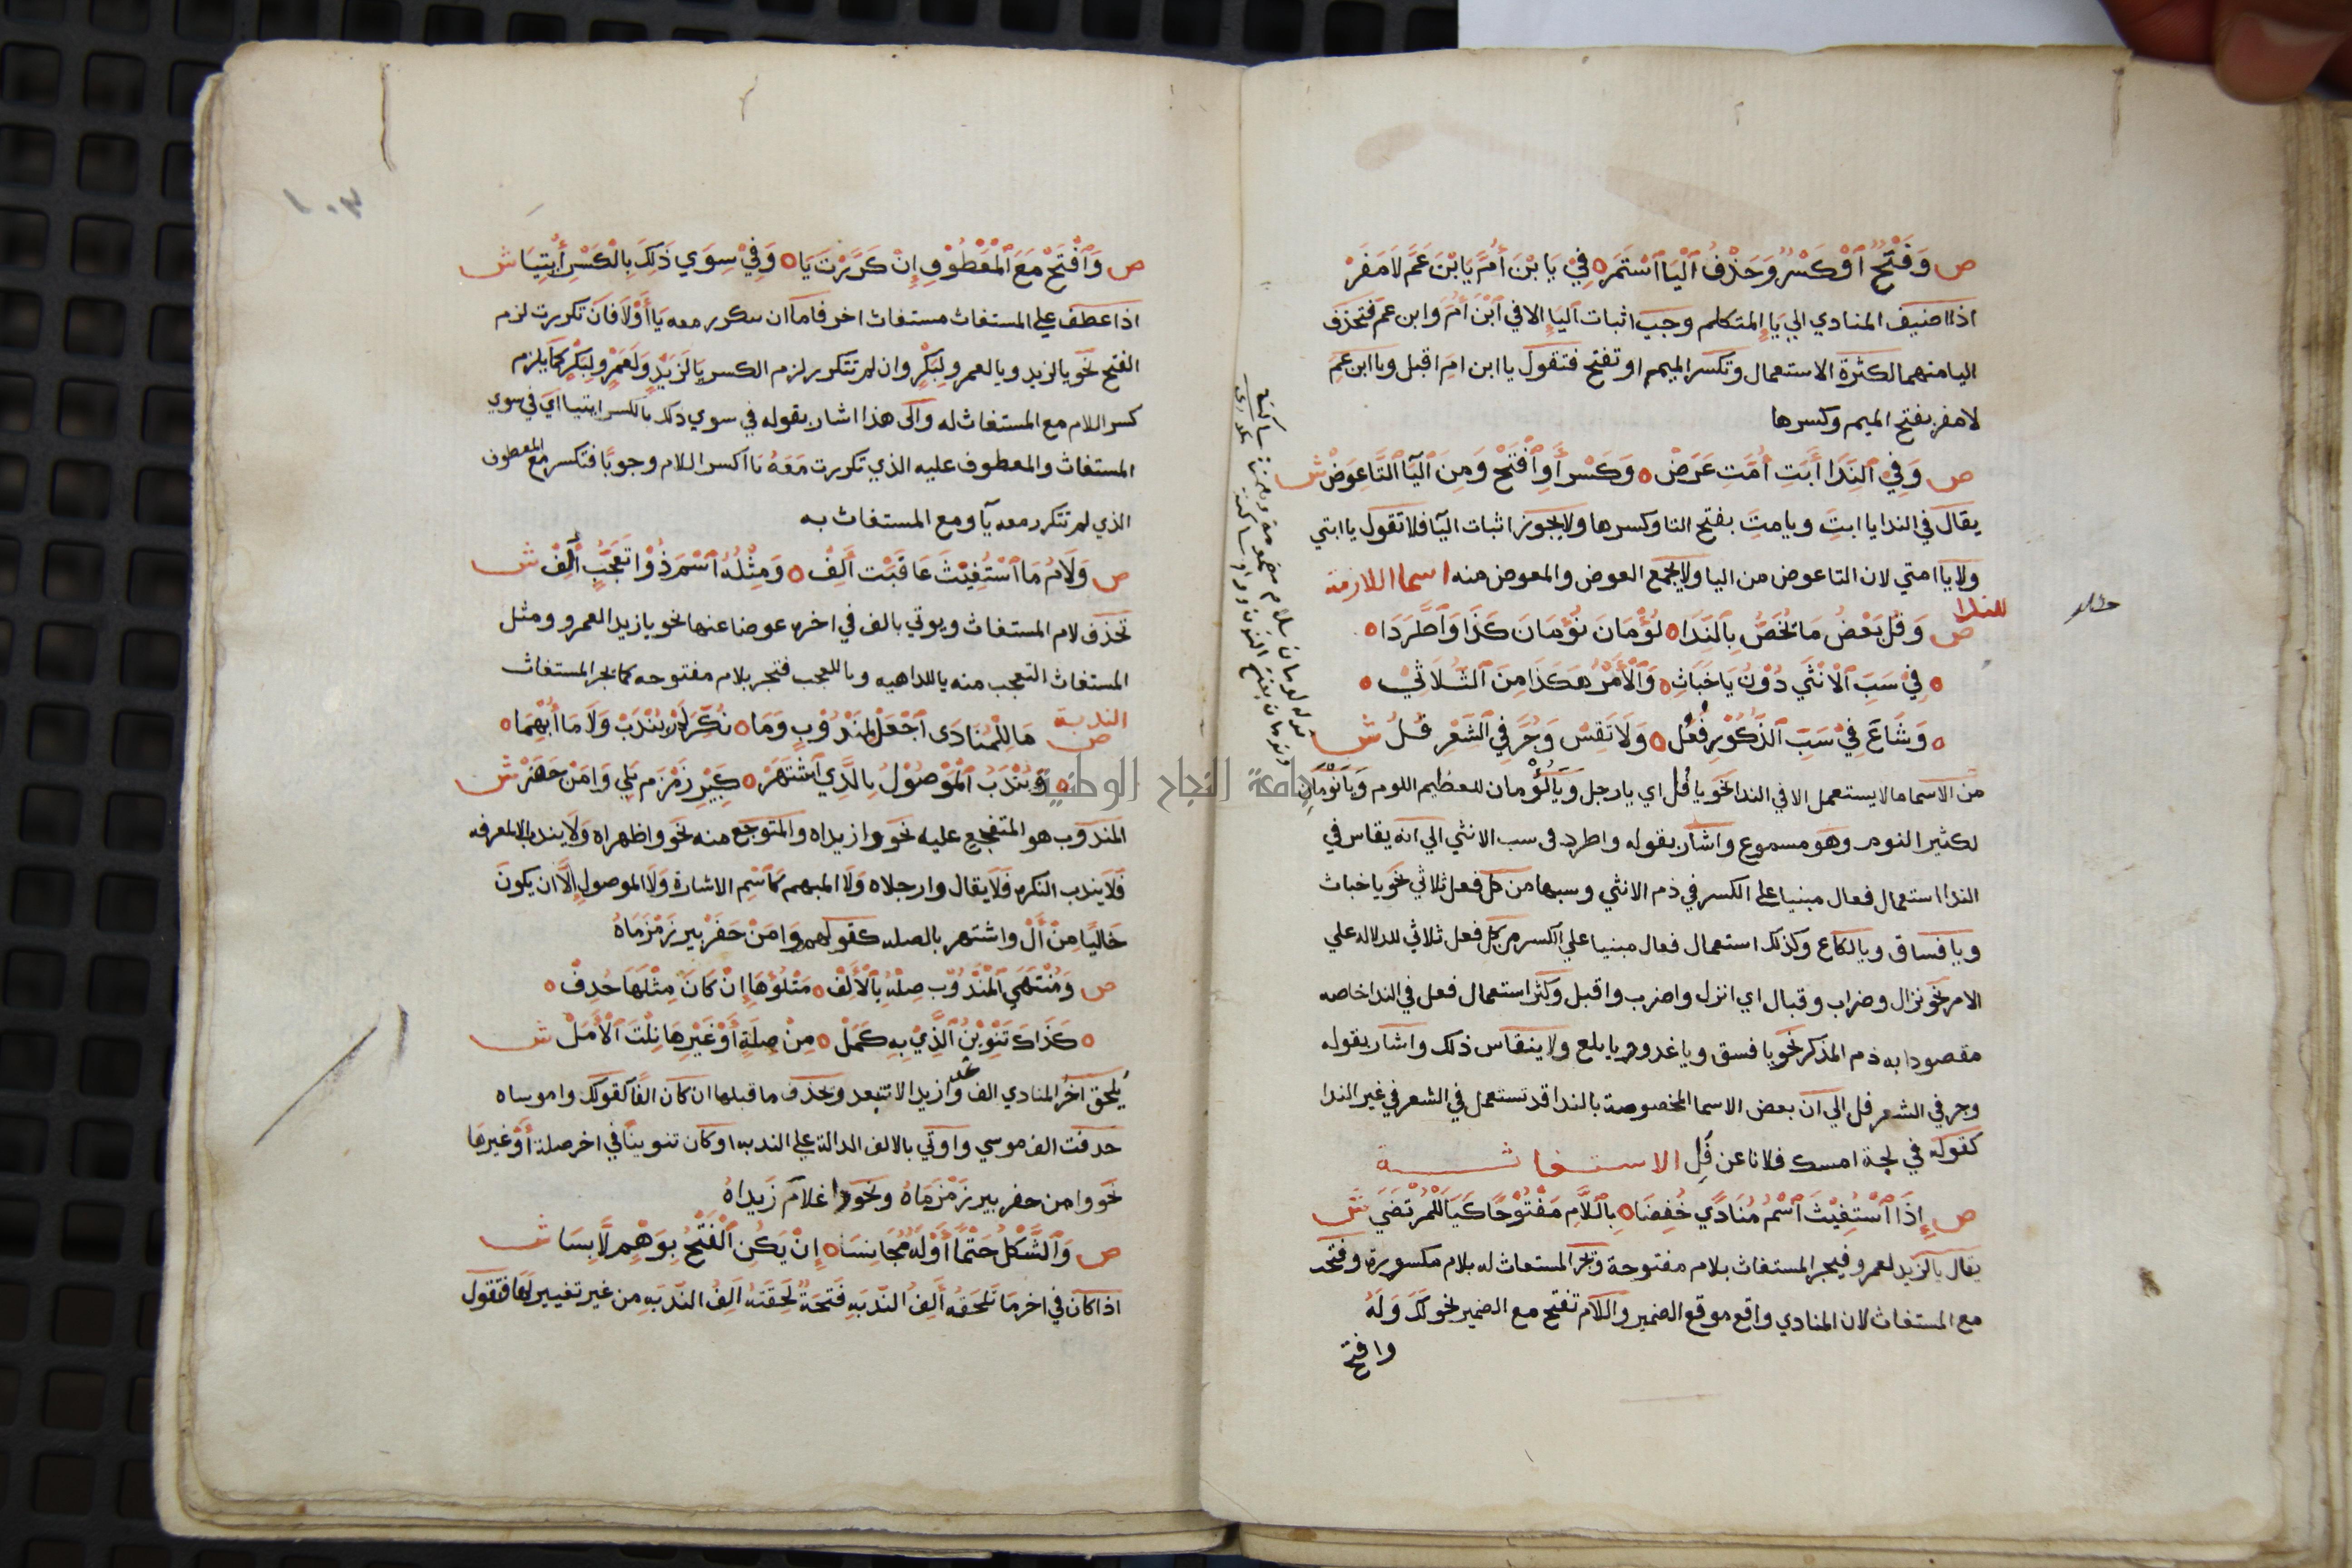 ص وَفَتْحٌ أَوْ كَسْرٌ وَحَذْفُ ٱلْيَا ٱسْتَمَرْ ۝ فِيْ يَا بْنَ أُمَّ يَا بْنَ عَمَّ لَا مَفَرْ
اذا اضيف المنادي الي يَاءِ المتكلم وجب اثبات اليَاءِ الا في ابْنَ اُمَّ وابن عم فتحذف
اليا منهما لكثرة الاستعمال وتكسر الميم او تفتح فتقول يا ابن امِّ اقبل ويا ابن عمِّ
لا مفر بفتح الميم وكسرها
ص وَفِي ٱلنِّدَا أَبَتِ أُمَّتِ عَرَضْ ۝ وَكَسْر أَوِ ٱفْتَحْ وَمِنَ ٱليَا ٱلتَّا عِوَضْ ش
يقال في الندا يا ابتِ ويا امتِ بفتح التا وكسرها ولا يجوز اثبات اليا فلا تقول يا ابتي
ولا يا امتي لان التا عوض من اليا ولا يجمع العوض والمعوض منه اسما اللازمة
للندا
ص وَفُلُ بَعْضُ مَا يُخَصُّ بِالنِّدَا ۝ لُؤْمَانَ نُؤْمَانَ كَذَا وَٱطَّرَدَا ۝
۝ فِيْ سَبِّ ٱلْانْثَي وَزْنُ يَا خَبَاثِ ۝ وَٱلْأَمْرُ هَكَذَا مِنَ ٱلثُّلَاثِيْ ۝
۝ وَشَاعَ فِيْ سَبِّ ٱلذُّكُوْرِ فُعَلُ ۝ وَلَا تَقِسْ وَجُرَّ فِي الشِّعْرِ فُلُ ش
من الاسما ما لا يستعمل الا في الندا نحو يا فُل اي يا رجل ويا لُؤْمان للعظيم اللوم ويا نَوْمان
لكثير النوم وهو مسموع واشار بقوله واطرد في سب الانثي الي انه يقاس في
الندا استعمال فعال مبنيا على الكسر في ذم الانثي وسبها من كل فعل ثلاثي نحو يا خباث
ويا فساق ويا لكاع وكذلك استعمال فعال مبنيا علي الكسر من كل فعل ثلاثي للدلاله علي
الامر نحو نزال وضراب وقبال اي انزل واضرب واقبل وكثر استعمال فعل في الندا خاصه
مقصودا به ذم المذكر نحو يا فسق ويا غدر ويا بلع ولا ينقاس ذلك واشار بقوله
وجر في الشعر فل الي ان بعض الاسما المخصوصة بالندا قد تستعمل في الشعر في غير الندا
كقوله في لجة امسك فلانا عن فُلِ الاستغاثة
ص إِذَا ٱسْتُغِيْثَ ٱسْمٌ مُنَادًي خُفِضَا ۝ بِاللَّامِ مَفْتُوْحًا كَيَا لَلْمُرْتَضَي ش
يقال يا لزيد لعمرو فيجر المستغاث بلام مفتوحة وتجر المستغاث له بلام مكسورة وفتحت
مع المستغاث لان المنادي واقع موقع الضمير واللام تفتح مع الضمير نحو لكَ وَلَهُ
وافتح
ص وَٱفْتَحْ مَعَ ٱلْمَعْطُوْفِ إِنْ كَرَّرْتَ يَا ۝ وَفِيْ سِوَي ذَلِكَ بِالْكَسْرِ أْتِيَا ش
اذا عطف علي المستغاث مستغاث اخر فاما ان تتكرر معه يَا أَوْلَا فان تكررت لزم
الفتح نحو يالزيد ويالعمرو لِبَكْرٍ وان لم تتكرر لزم الكسر يَا لَزَيْدٍ وَلِعَمْرٍو لِبَكْرٍ كما يلزم
كسر اللام مع المستغاث له والي هذا اشار بقوله في سوي ذلك بالكسر ايتيا اي في سوي
المستغاث والمعطوف عليه الذي تكررت مَعَهُ يَا اكسر اللام وجوبًا فتكسر مع المعطوف
الذي لم تتكرر معه يآ ومع المستغاث به
ص وَلَامُ مَا ٱسْتُغِيْثَ عَاقَبَتْ أَلِفْ ۝ وَمِثْلُهُ ٱسْمٌ ذُوْ تَعَجُّبٍ أُلِفْ ش
تحذف لام المستغاث ويوتي بالف في اخره عوضا عنها نحو يا زيدا لعمرو ومثل
المستغاث التعجب منه ياللداهيه وياللعجب فتجر بلام مفتوحه كما تجر المستغاث
الندبة
ص مَا لِلْمُنَادَى ٱجْعَلْ لِمَنْدُوْبٍ وَمَا ۝ نُكِّرَ لَمْ يُنْدَبْ وَلَا مَا أُبْهِمَا ۝
۝ وَيُنْدَبُ ٱلْمَوْصُوْلُ بِالَّذِي ٱشْتَهَرْ ۝ كَبِيْرِ زَمْزَمٍ يَلِي وَامَنْ حَفَرْ ش
المندوب هو المتفجع عليه نحو وازيداه والمتوجع منه نحو واظهراه ولا يندب الا المعرفه
فَلَا يندب النكره فَلَا يقال وارجلاه وَلَا المبهم كَاسْمِ الاشارة وَلَا الموصول إِلَّا ان يكون
خَاليًا مِنْ أَلْ واشتهر بالصله كقولهم وَامَنْ حَفَرْ بير زَمْزَمَاهُ
ص وَمُنْتَهَي ٱلْمَنْدُوْبِ صِلْهُ بِٱلْأَلِفْ ۝ مَتْلُوُّهَا إِنْ كَانَ مِثْلَهَا حُذِفْ ۝
۝ كَذَاكَ تَنْوِيْنُ ٱلَّذِيْ بِهِ كَمَلْ ۝ مِنْ صِلَةٍ أَوْ غَيْرِهَا نِلْتَ ٱلْأَمَلْ ش
يُلحق آخر المنادي الف وازيدا لا تبعد وتحذف ما قبلها ان كان الفًا كقولك واموساه
حدفت الف موسي واوتي بالالف الدالة علي الندبه او كان تنوينًا في اخر صلة أَوْ غيرهَا
نحو وامن حفر بير زَمْزَمَاهُ ونحو واغلامَ زَيداهُ
ص وَٱلشَّكْلُ حَتْمًا أَوْلِهِ مُجَانِسَا ۝ إِنْ يَكُنِ ٱلْفَتْحُ بِوَهْمٍ لَابِسَا ش
اذا كان في اخر مَا تلحَقه أَلِفُ النّدبَهِ فَتحَةٌ لَحِقَتهُ أَلِفُ النّدبَهِ مِن غير تغيير لَهَا فتقول
١٠٣
جامعة النجاح الوطنية